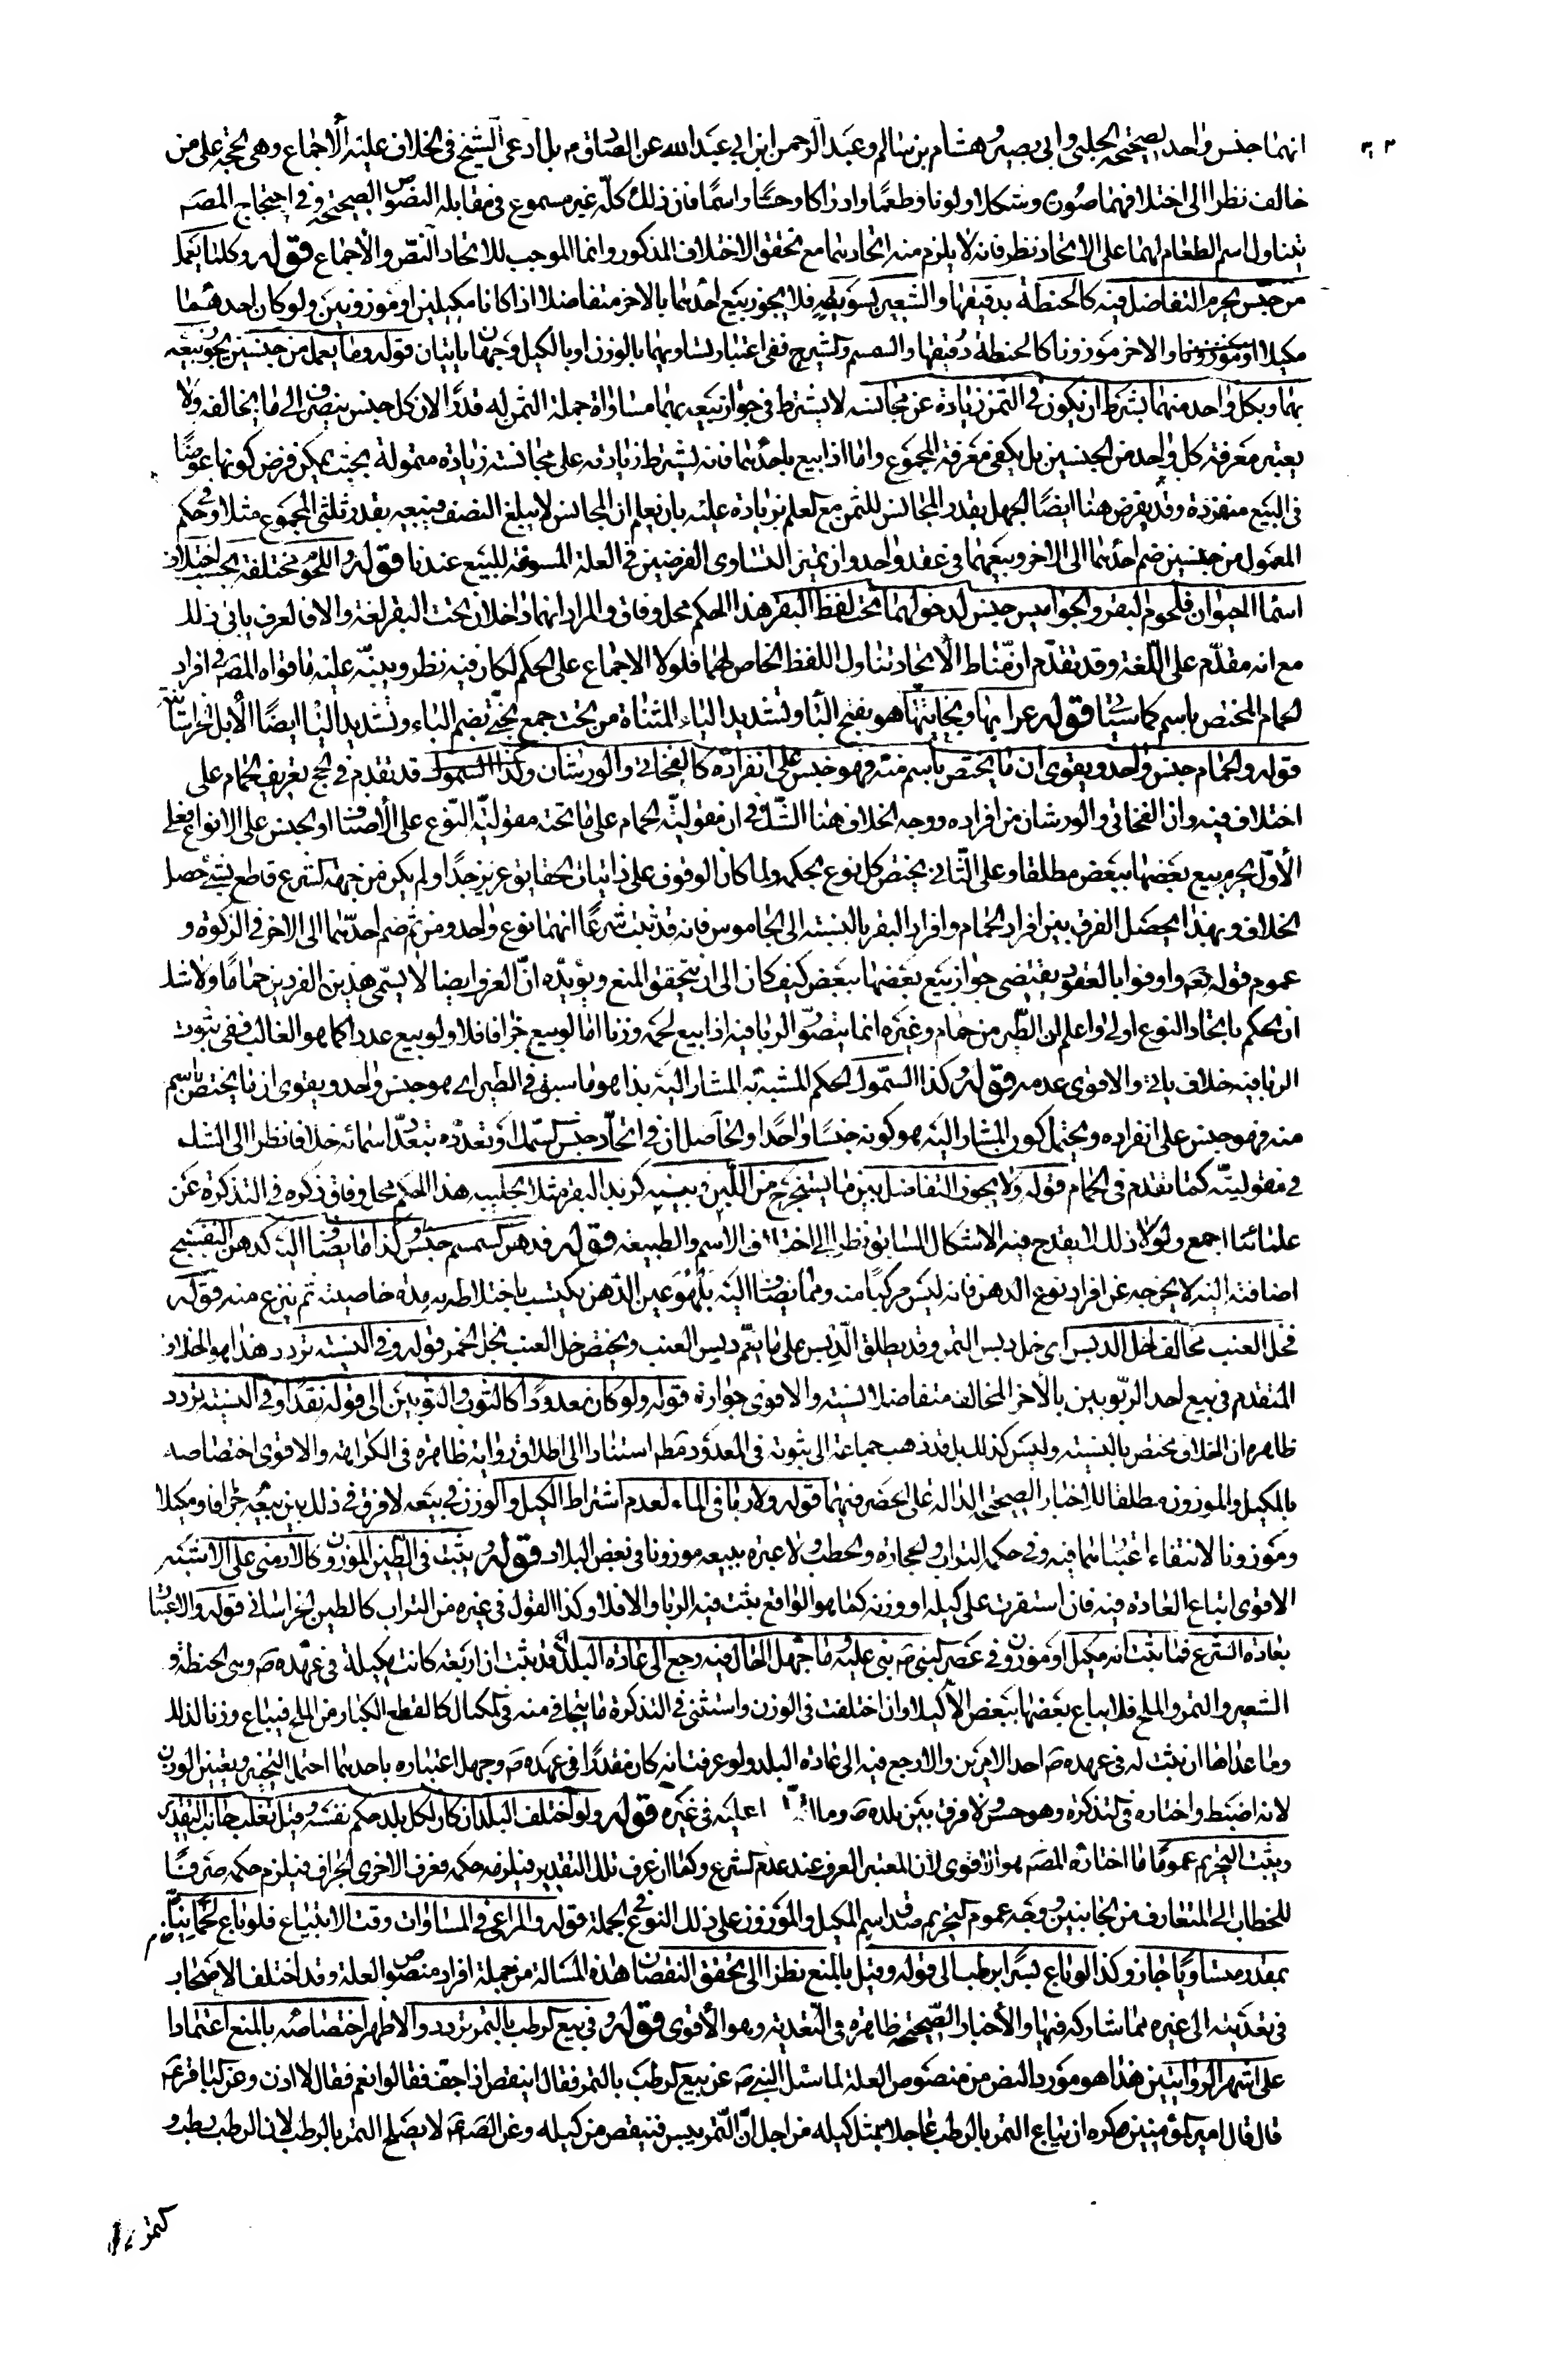 انهما جنس واحد لصحيحة الحلبي وابي بصير وهشام بن سالم وعبد الرحمن ابن ابي عبد الله عن الصادق م بل ادعى الشيخ في الخلاف عليه الاجماع وهي حجة على من
خالف نظرا الى اختلافهما صورة وشكلا ولونا وطعما وادراكا وحسا واسما فان ذلك كله غير مسموع في مقابلة النصوص الصحيحة وفي احتجاج المصم
بتناول اسم الطعام لهما على الاتحاد نظر فانه لا يلزم منه اتحادهما مع تحقق الاختلاف المذكور وانما الموجب للاتحاد النص والاجماع قوله وكلما يعمل
من جنس يحرم التفاضل فيه كالحنطة بدقيقها والشعير بسويقه فلا يجوز بيع احدهما بالاخر متفاضلا اذا كانا مكيلين او موزونين ولو كان احدهما
مكيلا او موزونا والاخر موزونا كالحنطة دقيقها والسمسم والشيرج ففي اعتبار تساويهما بالوزن او بالكيل وجهان ياتيان قوله وما يعمل من جنسين يجوز بيعه
بهما وبكل واحد منهما بشرط ان يكون في الثمن زيادة عن مجانسه لا يشترط في جواز بيعه بهما مساواة جملة الثمن له قدرا لان كل جنس ينصرف الى ما يخالفه ولا
يعتبر معرفة كل واحد من الجنسين بل يكفي معرفة المجموع واما اذا بيع باحدهما فانه يشترط زيادته على مجانسته زيادة متمولة بحيث يمكن فرض كونها عوضا
في البيع منفردة وقد يفرض هنا ايضا الجهل بقدر المجانس للثمن مع العلم بزيادة عليه بان يعلم ان المجانس لا يبلغ النصف فيبيعه بقدر ثلثي المجموع مثلا وفي حكم
المعمول من جنسين ضم احدهما الى الاخر وبيعهما في عقد واحد وان تميز التساوى الفرضين في العلة المسوغة للبيع عندنا قوله واللحوم مختلفة بحسب اختلاف
اسماء الحيوان فلحوم البقر والجواميس جنس لدخولهما تحت لفظ البقر هذا الحكم محل وفاق والمراد انهما داخلان تحت البقر لغة والا فالعرف يابى ذلك
مع انه مقدم على اللغة وقد تقدم ان مناط الاتحاد تناول اللفظ الخاص لهما فلولا الاجماع على الحكم لكان فيه نظر وينبه عليه ما قواه المصم في افراد
الحمام المختص باسم كما سياتي قوله عرابها وبخاتيها هو بفتح الباء وتشديد الياء المثناة من تحت جمع بختي بضم الباء وتشديد الياء ايضا الابل الخراسانية
قوله والحمام جنس واحد ويقوى ان ما يختص باسم منه فهو جنس على انفراده كالفخاتي والورشان وكذا السموك قد تقدم في الحج تعريف الحمام على
اختلاف فيه وان الفخاتي والورشان من افراده ووجه الخلاف هنا الشك في ان مقولية الحمام على ما تحته مقولية النوع على الاصناف او الجنس على الانواع فعلى
الاول يحرم بيع بعضها ببعض مطلقا وعلى الثاني يختص كل نوع بحكمه ولما كان الوقوف على ذاتيات الحقايق عزيز جدا ولم يكن من جهة الشرع قاطع بشيء حصل
الخلاف وبهذا يحصل الفرق بين افراد الحمام وافراد البقر بالنسبة الى الجاموس فانه قد ثبت شرعا انهما نوع واحد ومن ثم ضم احدهما الى الاخر في الزكوة و
عموم قوله تعم واوفوا بالعقود يقتضي جواز بيع بعضها ببعض كيف كان الى ان يتحقق المنع ويؤيده ان العرف ايضا لا يسمى هذين الفردين حماما ولا شك
ان الحكم باتحاد النوع اولى واعلم ان الطير من حمام وغيره انما يتصور الربا فيه اذا بيع لحمه وزنا اما لو بيع جزافا فلا ولو بيع عددا كما هو الغالب ففي ثبوت
الربا فيه خلاف ياتي والاقوى عدمه قوله وكذا السموك الحكم المشبه به المشار اليه بذا هو ما سبق في الطير اي هو جنس واحد ويقوى ان ما يختص باسم
منه فهو جنس على انفراده ويحتمل كون المشار اليه هو كونه جنسا واحدا والحاصل ان في اتحاد جنس السمك او تعدده بتعدد اسمائه خلافا نظرا الى الشك
في مقوليته كما تقدم في الحمام قوله ولا يجوز التفاضل بين ما يستخرج من اللبن وبينه كزبد البقر مثلا بحليبه هذا الحكم محل وفاق ذكره في التذكرة عن
علمائنا اجمع ولولا ذلك لا يقدح فيه الاشكال السابق نظرا الى اختلاف الاسم والطبيعة قوله فدهن السمسم جنس وكذا ما يضاف اليه كدهن البنفسج
اضافته اليه لا يخرجه عن افراد نوع الدهن فانه ليس مركبا منه ومما يضاف اليه بل هو عين الدهن يكتسب باختلاطه به مدة خاصيته ثم ينزع منه قوله
فخل العنب مخالف لخل الدبس اى خل دبس التمر وقد يطلق الدبس على ما يعم دبس العنب ويختص خل العنب بخل الخمر قوله وفي النسيئة تردد هذا هو الخلاف
المتقدم في بيع احد الربويين بالاخر المخالف متفاضلا نسيئة والاقوى جوازه قوله ولو كان معدودا كالثوب والثوبين الى قوله نقدا وفي النسيئة تردد
ظاهره ان الخلاف مختص بالنسيئة وليس كذلك بل قد ذهب جماعة الى ثبوته في المعدود مطم استنادا الى اطلاق رواية ظاهره في الكراهة والاقوى اختصاصه
بالمكيل والموزون مطلقا للاخبار الصحيحة الدالة على الحصر فيهما قوله ولا ربا في الماء لعدم اشتراط الكيل والوزن في بيعه لا فرق في ذلك بين بيعه جزافا ومكيلا
وموزونا لانتفاء اعتبارهما فيه وفي حكمه التراب والحجارة والحطب ولا عبرة ببيعه موزونا في بعض البلاد قوله ويثبت في الطين الموزون كالارمني على الاشبه
الاقوى اتباع العادة فيه فان استقرت على كيله او وزنه كما هو الواقع يثبت فيه الربا والا فلا وكذا القول في غيره من التراب كالطين الخراساني قوله والاعتبار
بعادة الشرع فما ثبت انه مكيل او موزون في عصر النبي ص بني عليه وما جهل الحال فيه رجع الى عادة البلد قد ثبت ان اربعة كانت مكيلة في عهده ص وهي الحنطة و
الشعير والتمر والملح فلا يباع بعضها ببعض الا كيلا وان اختلفت في الوزن واستثنى في التذكرة ما يتجافى منه في المكيال كالقطع الكبار من الملح فيباع وزنا لذلك
وما عداها ان ثبت له في عهده ص احد الامرين والا رجع فيه الى عادة البلد ولو عرفت انه كان مقدرا في عهده ص وجهل اعتباره باحدهما احتمل التخيير ويتعين الوزن
لانه اضبط واختاره في التذكرة وهو حسن ولا فرق بين بلده ص وما عليه في غيره قوله ولو اختلف البلدان كان لكل بلد حكم نفسه وقيل يغلب جانب التقدير
ويثبت التحريم عموما ما اختاره المصم هو الاقوى لان المعتبر العرف عند عدم الشرع وكما ان عرف تلك التقدير فيلزمه حكمه فعرف الاخرى الجزاف فيلزم حكمه صرفا
للخطاب الى المتعارف من الجانبين ووجه عموم التحريم صدق اسم المكيل والموزون على ذلك النوع في الجملة قوله والمراعى في المساوات وقت الابتياع فلو باع لحما نيا
بمقدد متساويا جاز وكذا لو باع بسرا برطب الى قوله وقيل بالمنع نظرا الى تحقق النقصان هذه المسالة من جملة افراد منصوص العلة وقد اختلف الاصحاب
في تعديته الى غيره مما شاركه فيها والاخبار الصحيحة ظاهره في التعدية وهو الاقوى قوله وفي بيع الرطب بالتمر تردد والاظهر اختصاصه بالمنع اعتمادا
على اشهر الروايتين هذا هو مورد النص من منصوص العلة لما سئل النبي ص عن بيع الرطب بالتمر فقال اينقص اذا جف فقالوا نعم فقال لا اذن وعن الباقر عم
قال قال امير المؤمنين ص كره ان يباع التمر بالرطب عاجلا بمثل كيله من اجل ان التمر ييبس فينقص من كيله وعن الصم عم لا يصلح التمر بالرطب لان الرطب رطب و